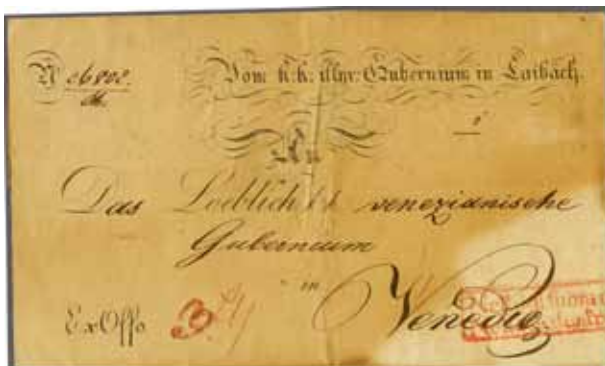 N
Vom k.k. illyr: Gubernium in Laibach.
An
Das Loeblich k k venezianische
Gubernium
in
Venedig
Ex Offo
3